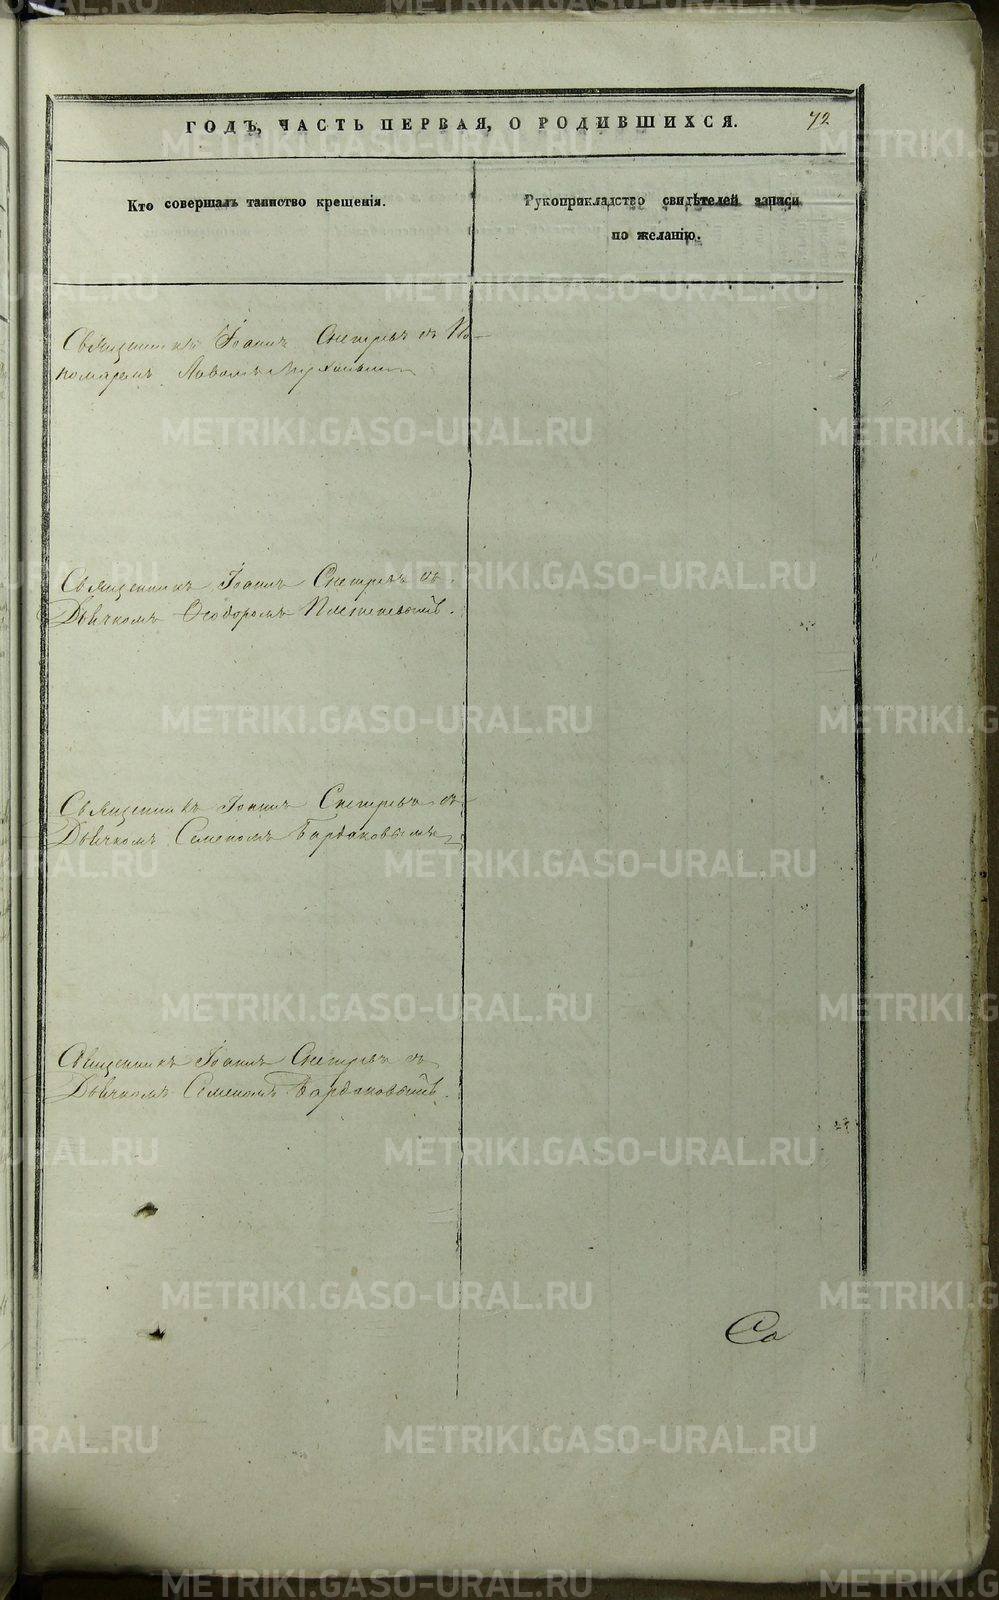 ГОДЪ, ЧАСТЬ ПЕРВАЯ, О РОДИВШИХСЯ. 72
Кто совершалъ таинство крещенія.
Рукоприкладство свидѣтелей записи
по желанію.
Священникъ Іоаннъ съ По-
номаремъ
Священникъ Іоаннъ съ
Дьячкомъ Ѳеодоромъ
Священникъ Іоаннъ съ
Дьячкомъ Семеномъ Бардаковымъ
Священникъ Іоаннъ съ
Дьячкомъ Семеномъ Бардаковымъ.
Со
METRIKI.GASO-URAL.RU